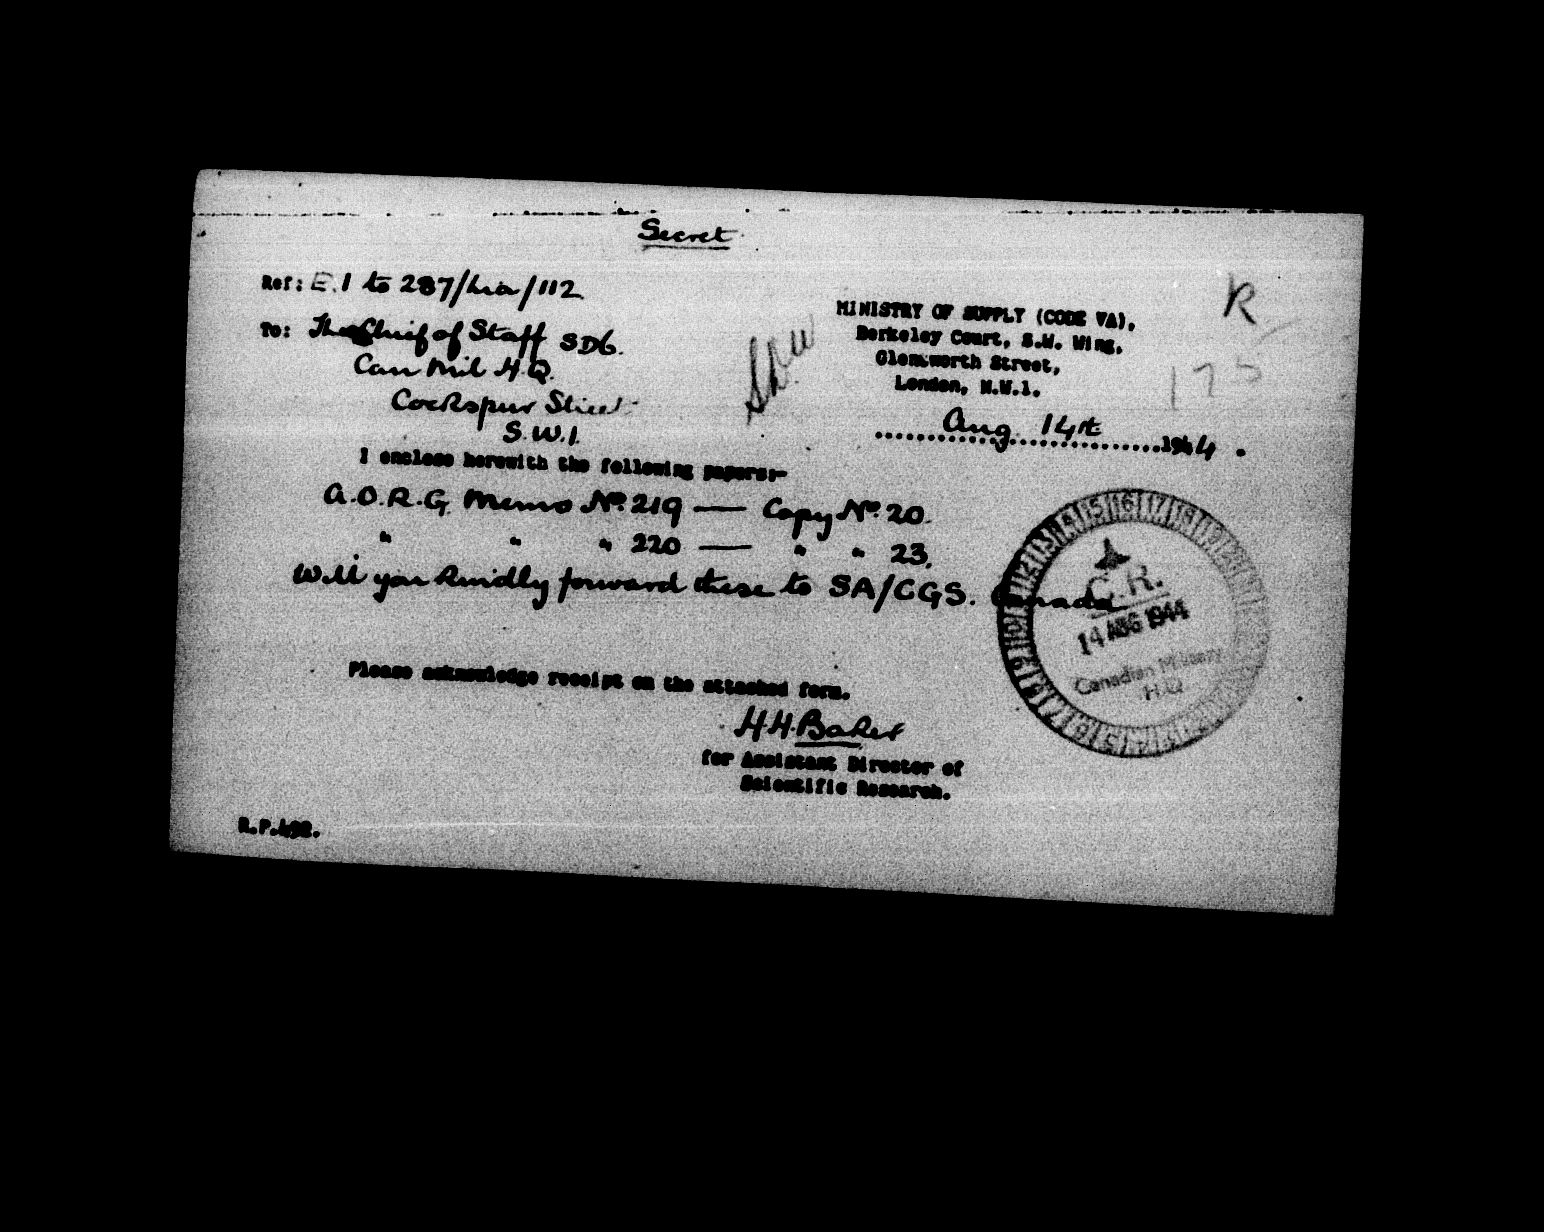 Secret
Ref: E.1 to 287/ /112
To: The Chief of Staff SD6.
Can Mil H.Q.
Cockspur Street
S.W.1.
MINISTRY OF SUPPLY (CODE VA),
Berkeley Court, S.W. Wing,
Glentworth Street,
London, N.W.1.
Aug. 14th 1944.
R
175
I enclose herewith the following papers:-
A.O.R.G. Memo No. 219 — Copy No. 20.
" " " 220 — " " 23.
Will you kindly forward these to SA/CGS. Canada
C.R.
14 AUG 1944
Canadian Military
H.Q.
Please acknowledge receipt on the attached form.
H.H. Baker
for Assistant Director of
Scientific Research.
R.P.492.